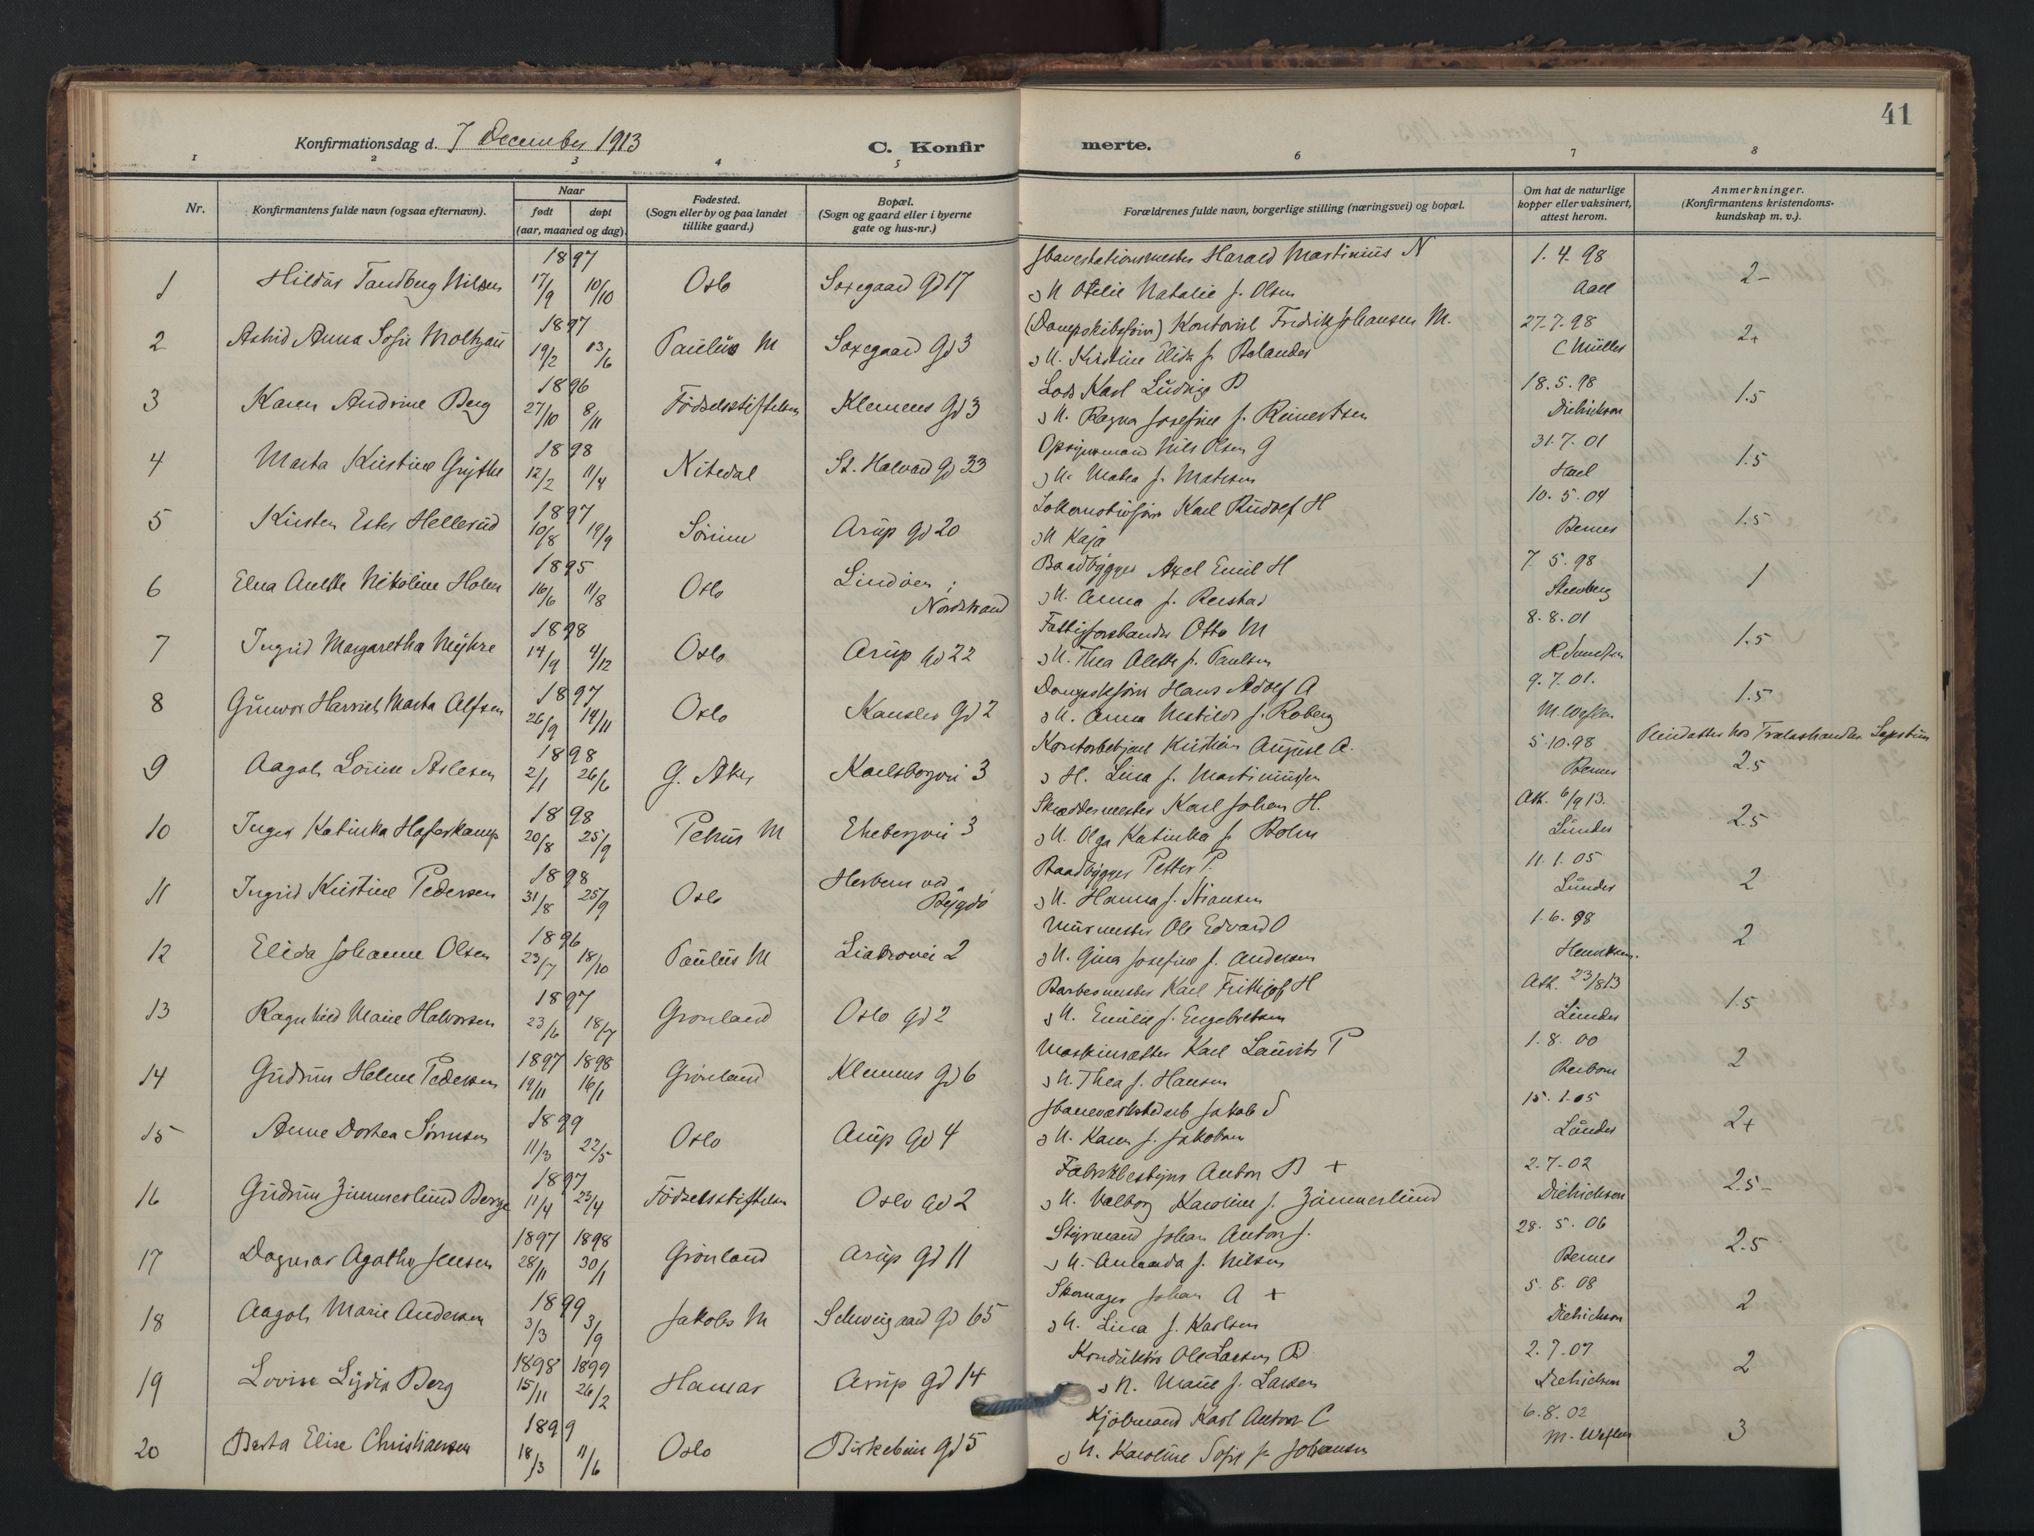 41
Konfirmationsdag d. 7 December 1913
C. Konfir merte.
1 2 3 4 5 6 7 8
Nr.
Konfirmantens fulde navn (ogsaa efternavn).
Naar
født døpt
(aar, maaned og dag).
Fødested.
(Sogn eller by og paa landet
tillike gaard.)
Bopæl.
(Sogn og gaard eller i byerne
gate og hus-nr.)
Forældrenes fulde navn, borgerlige stilling (næringsvei) og bopæl.
Om hat de naturlige
kopper eller vaksinert,
attest herom.
Anmerkninger.
(Konfirmantens kristendoms-
kundskap m. v.).
1897 Harald Martinius N 1.4.98
1 Hildur Tandberg Nilsen 17/9 10/10 Oslo Saxegaard gd 17 2-
Natalie f. Olsen Aall
1897 Fredrik Johansen M. 27.7.98
2 Astrid Anna Sofie Moltzau 19/2 13/6 Paulus M Saxegaard gd 3 2+
Kristine f. Bolander C Müller
1896 Lods Karl Ludvig B 18.5.98
3 Karen Andrine Berg 27/10 8/11 Fødselsstiftelsen Klemens gd 3 1.5
Ragna Josefine f. Reinertsen Dietrichson
1898 Nils Olsen G 31.7.01
4 Marta Kirstine 12/2 11/4 Nitedal St. Halvard gd 33 1.5
f. Madsen
1897 Karl Rudolf H 10.5.04
5 Kirsten Ester Hellerud 10/8 19/9 Sørum Arup gd 20 1.5
Kaja Berner
1895 Baadbygger Axel Emil H 7.5.98
6 Elna Anette Nikoline Holm 16/6 11/8 Oslo Lindøen, Nordstrand 1
Anna f. Steenberg
1898 Otto M 8.8.01
7 Ingrid Margaretha Myhre 14/9 4/12 Oslo Arup gd 22 1.5
Thea Alette f. Paulsen
1897 Hans Adolf A 9.7.01.
8 Gunvor Harriet Marta Alfsen 26/9 14/11 Oslo Kansler gd 2 1.5
Anna Mathilde f. Roberg
1898 Kristian August A. 5.10.98
9 Aagot Lovise Aslesen 2/1 26/6 G. Aker Karlsborgvei 3 2.5
Lina f. Martiniussen Berner
1898 Skreddermester Karl Johan H. Att. 6/9 13.
10 Inger Katinka Haferkamp 20/8 25/9 Petrus M Ekebergvei 3 2.5
Olga Katinka f. Bohn Lunder
1898 Baadbygger Petter P. 11.1.05
11 Ingrid Kristine Pedersen 31/8 25/9 Oslo Herbern ved Bygdø 2
Hanna f. Lunder
1896 Murmester Ole Edvard O 1.6.98
12 Elida Johanne Olsen 23/7 18/10 Paulus M Liabrovei 2 2
Gina Josefine f. Andersen Henriksen.
1897 Barbermester Karl Fritjof H Att. 23/8 13
13 Ragnhild Marie Halvorsen 23/6 18/7 Grønland Oslo gd 2 1.5
Emilie f. Engebretsen Lunder
1897 1898 Karl Lauritz P 1.8.00
14 Gudrun Helene Pedersen 19/11 16/1 Grønland Klemens gd 6 2
Thea f. Hansen
1899 Jakob S 15.1.05
15 Anne Dortea Sørensen 11/3 22/5 Oslo Arup gd 4 2+
Karen f. Jakobsen Lunder
1897 Fabrikbestyrer Anton B + 2.7.02
16 Gudrun Zimmerlund Berge 11/4 23/4 Fødselsstiftelsen Oslo gd 2 2.5-
Valborg Karoline f. Zimmerlund Dietrichson
1897 1898 Styrmand Johan Anton J. 28.5.06
17 Dagmar Agathe Jensen 28/11 30/1 Grønland Arup gd 11 2.5
Amanda f. Nilsen Berner
1899 Skomager Johan A + 5.8.08
18 Aagot Marie Andersen 3/3 3/9 Jakobs M Schweigaard gd 65 2
Lina f. Karlsen Dietrichson
1898 1899 Konduktør Ole Larsen B 2.7.07
19 Lovise Lydia Berg 15/11 26/2 Hamar Arup gd 14 2
Marie f. Larsen Dietrichson
1899 Kjøbmand Karl Anton C 6.8.02
20 Berta Elise Christiansen 18/3 11/6 Oslo Birkebein gd 5 3
Karoline Sofie f. Johansen